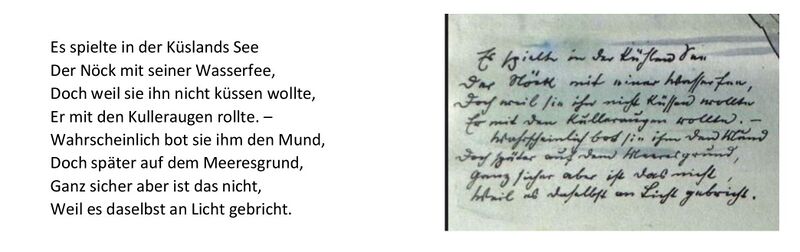 Es spielte in der Küslands See
Der Nöck mit seiner Wasserfee,
Doch weil sie ihn nicht küssen wollte,
Er mit den Kulleraugen rollte. –
Wahrscheinlich bot sie ihm den Mund,
Doch später auf dem Meeresgrund,
Ganz sicher aber ist das nicht,
Weil es daselbst an Licht gebricht.
Es spielte in der See
Der Nöck mit einer Wasserfee,
Doch weil sie ihn nicht küssen wollte
Er mit den Kulleraugen rollte. –
Wahrscheinlich bot sie ihm den Mund
Doch später auf dem Meeresgrund,
Ganz sicher aber ist das nicht,
Weil es daselbst an Licht gebricht.